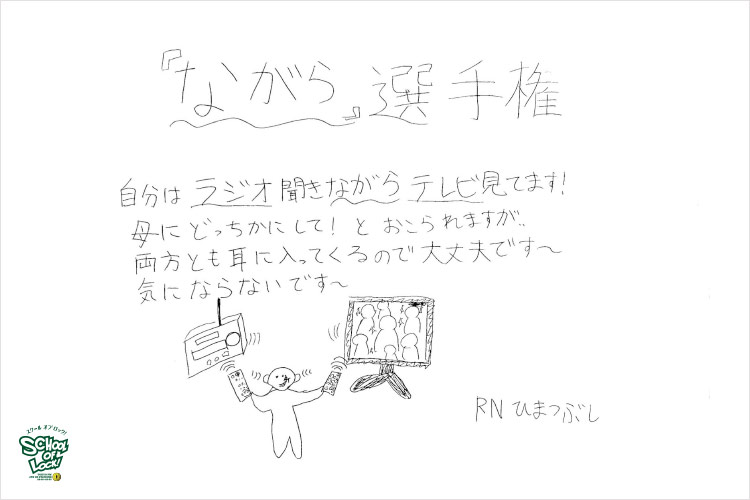 『ながら』選手権
自分は ラジオ聞きながら テレビ見てます!
母に どっちかにして! と おこられますが..
両方とも耳に入ってくるので大丈夫です〜
気にならないです〜
RN ひまつぶし
スクール オブ ロック!
SCHOOL
OF
LOCK!